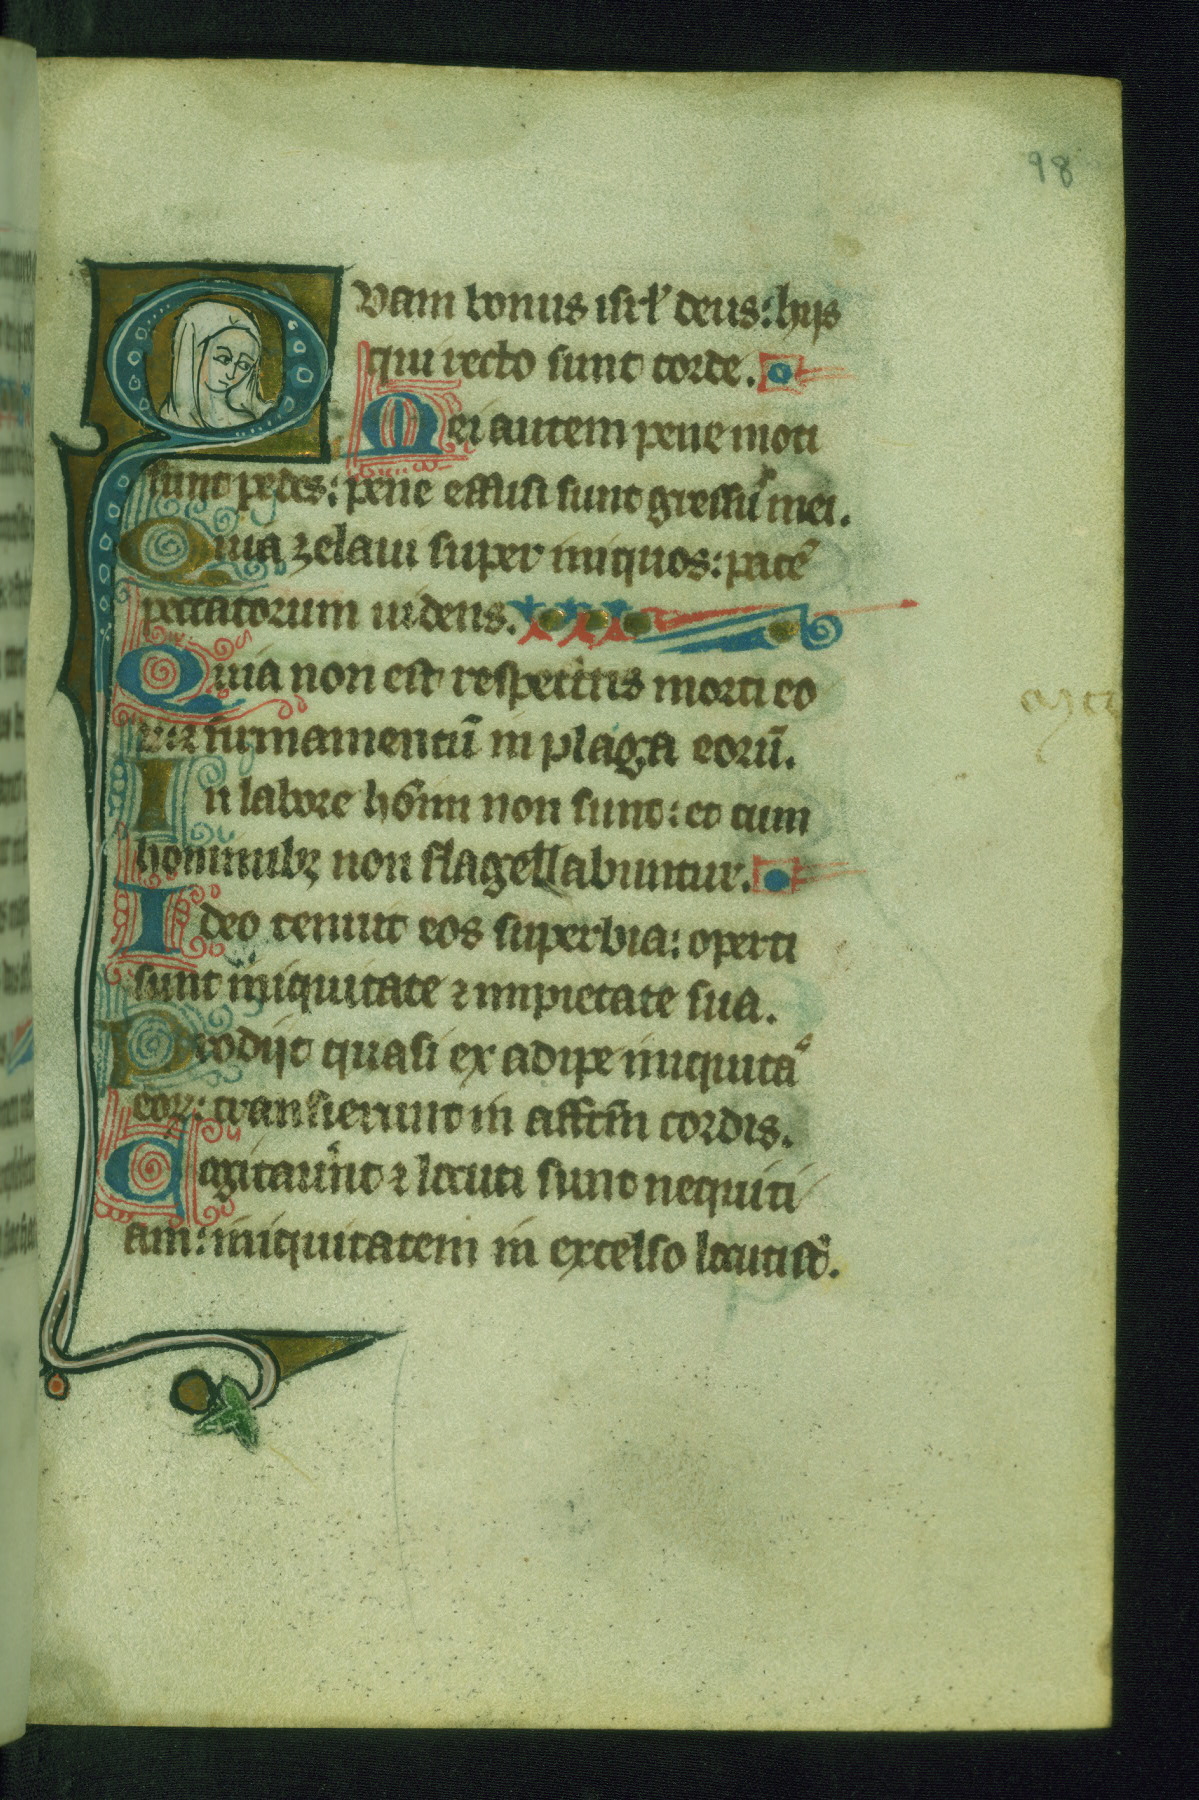 98
Quam bonus isrl' deus: hijs
qui recto sunt corde.
Mei autem pene moti
sunt pedes: pene effusi sunt gressus mei.
Quia zelaui super iniquos: pacē
peccatorum uidens.
Quia non est respectus morti eo
rum: ⁊ firmamentū in plaga eorū.
In labore hoīnū non sunt: et cum
hominibꝫ non flagellabuntur.
Ideo tenuit eos superbia: operti
sunt iniquitate ⁊ impietate sua.
Prodijt quasi ex adipe iniquitas
eoꝝ: transierunt in affcm̄ cordis.
Cogitauer̄nt ⁊ locuti sunt nequiti
am: iniquitatem in excelso locuti sō.